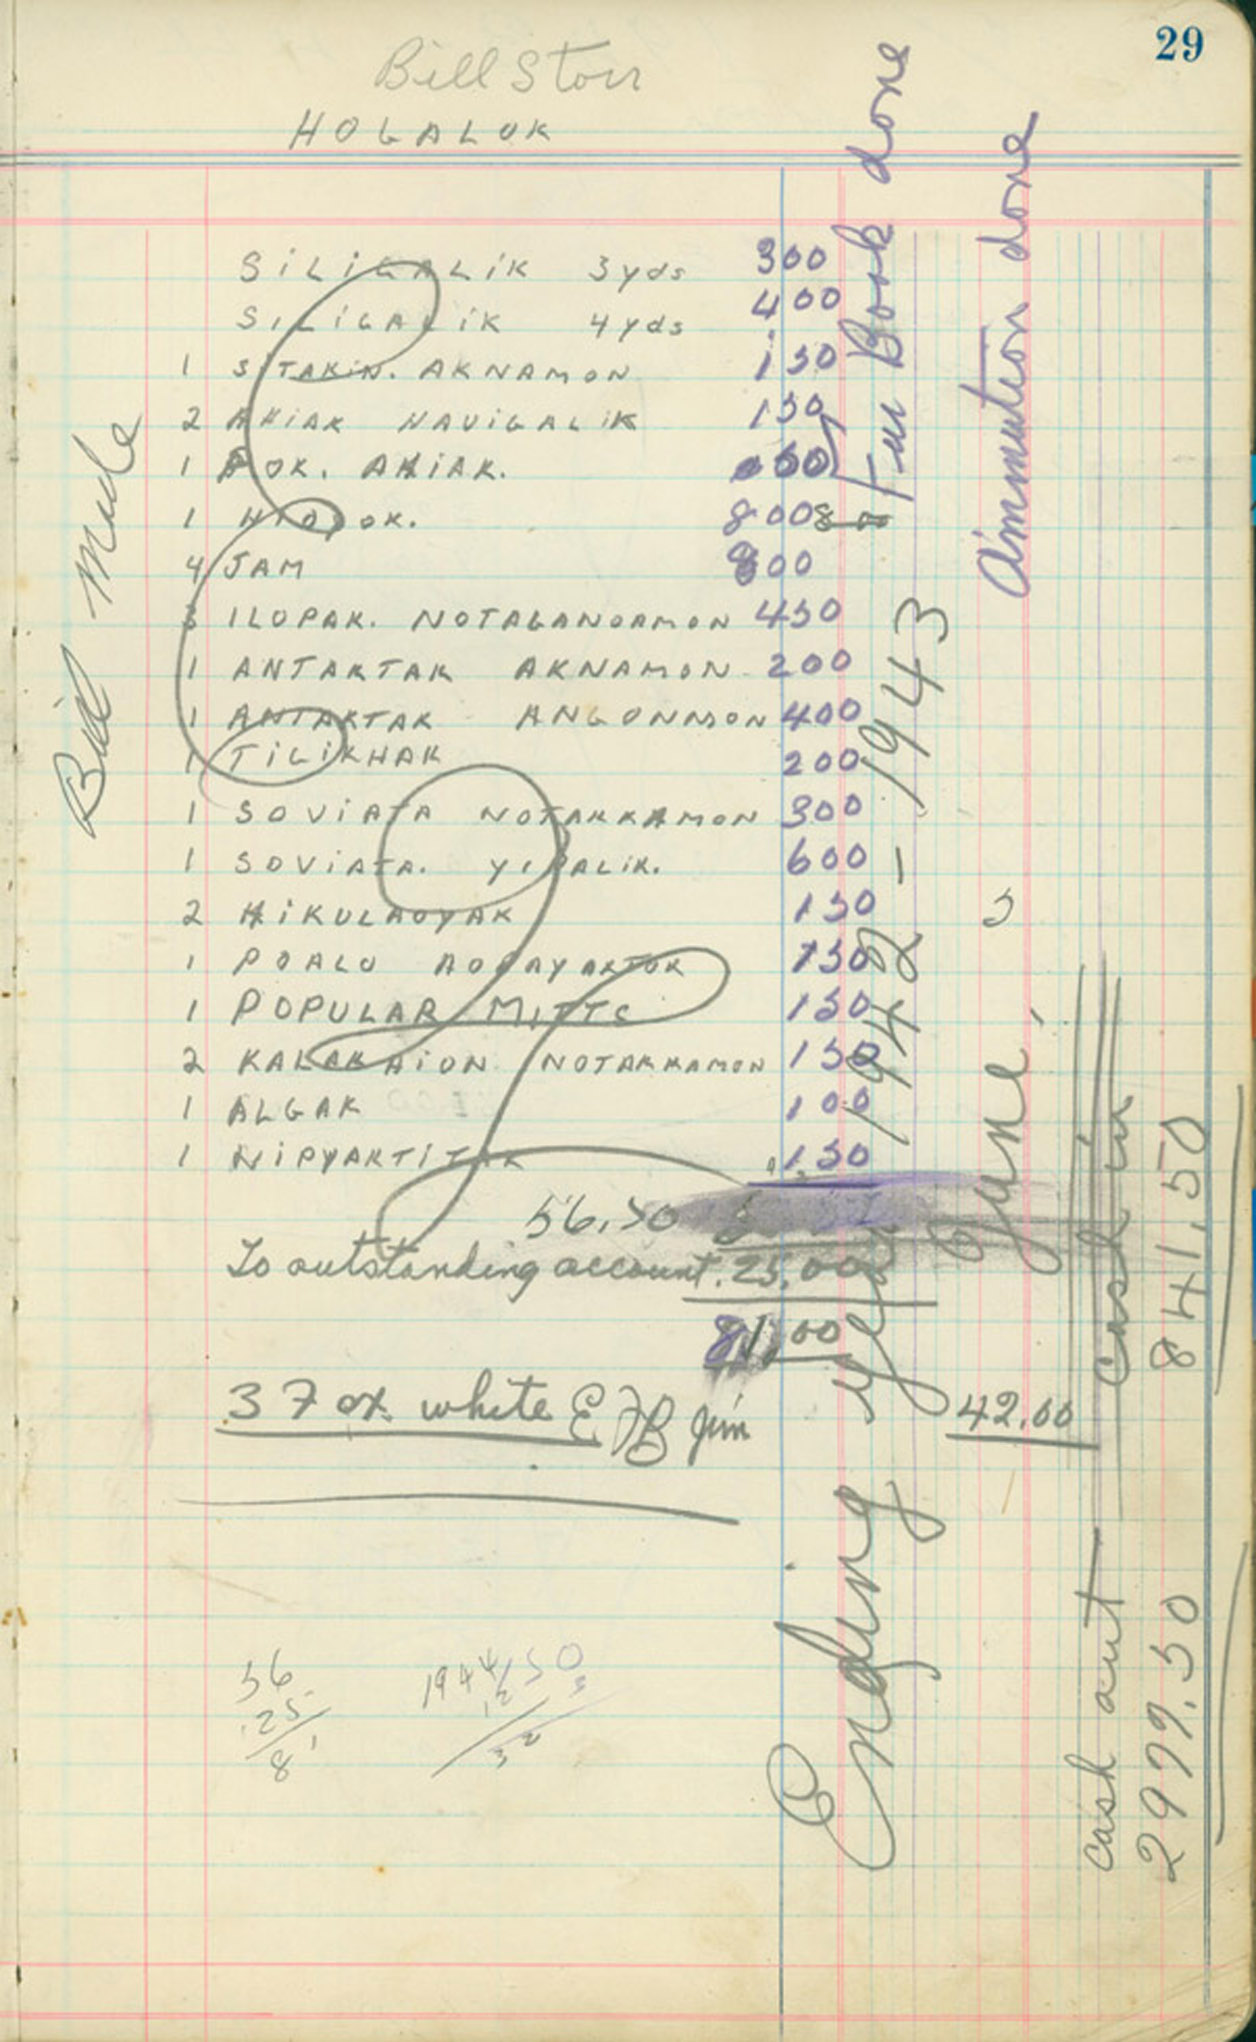 29
Bill Storr
HOGALUK
SiLiGALiK 3yds 300
SiLiGALiK 4yds 400
1 SiTAKiN. AKNAMON 150
2 AHiAK NAUiGALiK 150
1 POK. AHiAK.
1 800
4 JAM 800
3 ILUPAK. NOTAGANOAMON 450
1 ANTAKTAK AKNAMON 200
1 ANTAKTAK ANGONMON 400
1 TiLiKHAK 200
1 SOViATA NOTAKKAMON 300
1 SOViATA. YiPALiK. 600
2 HiKULAOYAK 150
1 POALU AOGAYAKTOK 150
1 POPULAR MiTTS 150
2 KALAKAiON NOTAKKAMON 150
1 ALGAK 100
1 NiPYAKTiTAK 150
56.50
To outstanding account. 25.00
81.00
37 ox white E FB Jim
56
25
81
1944
32
Bill Mule
Fur Book done
Ammution done
Ending year 1942 - 1943
June,
5
42.00
cash in
841.50
cash out
2999.50